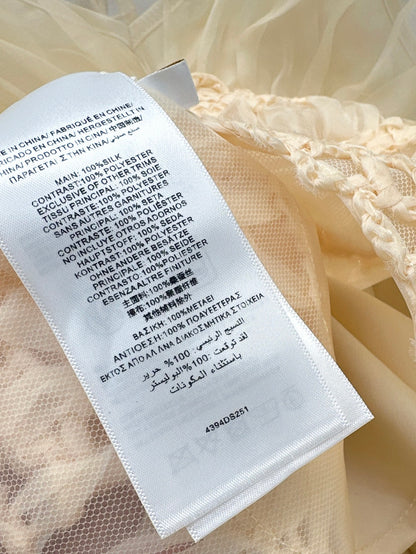 IN CHINA/ FABRIQUÉ EN CHINE/
RICADO EN CHINA/ HERGESTELLT IN
CHINA/ PRODOTTO IN CINA/ 中国制造/
ΠΑΡΑΓΕΤΑΙ ΣΤΗΝ ΚΙΝΑ/ صنع في الصين
MAIN: 100%SILK
CONTRAST:100% POLYESTER
EXCLUSIVE OF OTHER TRIMS
TISSU PRINCIPAL: 100% SOIE
CONTRASTE: 100% POLYESTER
SANS AUTRES GARNITURES
PRINCIPAL: 100% SEDA
CONTRASTE: 100% POLIÉSTER
NO INCLUYE OTROS ADORNOS
HAUPTSTOFF: 100% SEIDE
KONTRAST:100% POLYESTER
OHNE ANDERE BESÄTZE
PRINCIPALE: 100% SETA
CONTRASTO: 100% POLIESTERE
ESENZA ALTRE FINITURE
主面料:100%蚕丝
撞布:100%聚酯纤维
其他辅料除外
ΒΑΣΙΚΗ: 100%ΜΕΤΑΞΙ
ΑΝΤΙΘΕΣΗ:100% ΠΟΛΥΕΣΤΕΡΑΣ
ΕΚΤΟΣ ΑΠΟ ΑΛΛΑ ΔΙΑΚΟΣΜΗΤΙΚΑ ΣΤΟΙΧΕΙΑ
النسيج الرئيسي: 100% حرير
100%البوليستر
باستثناء المكونات
4394DS251